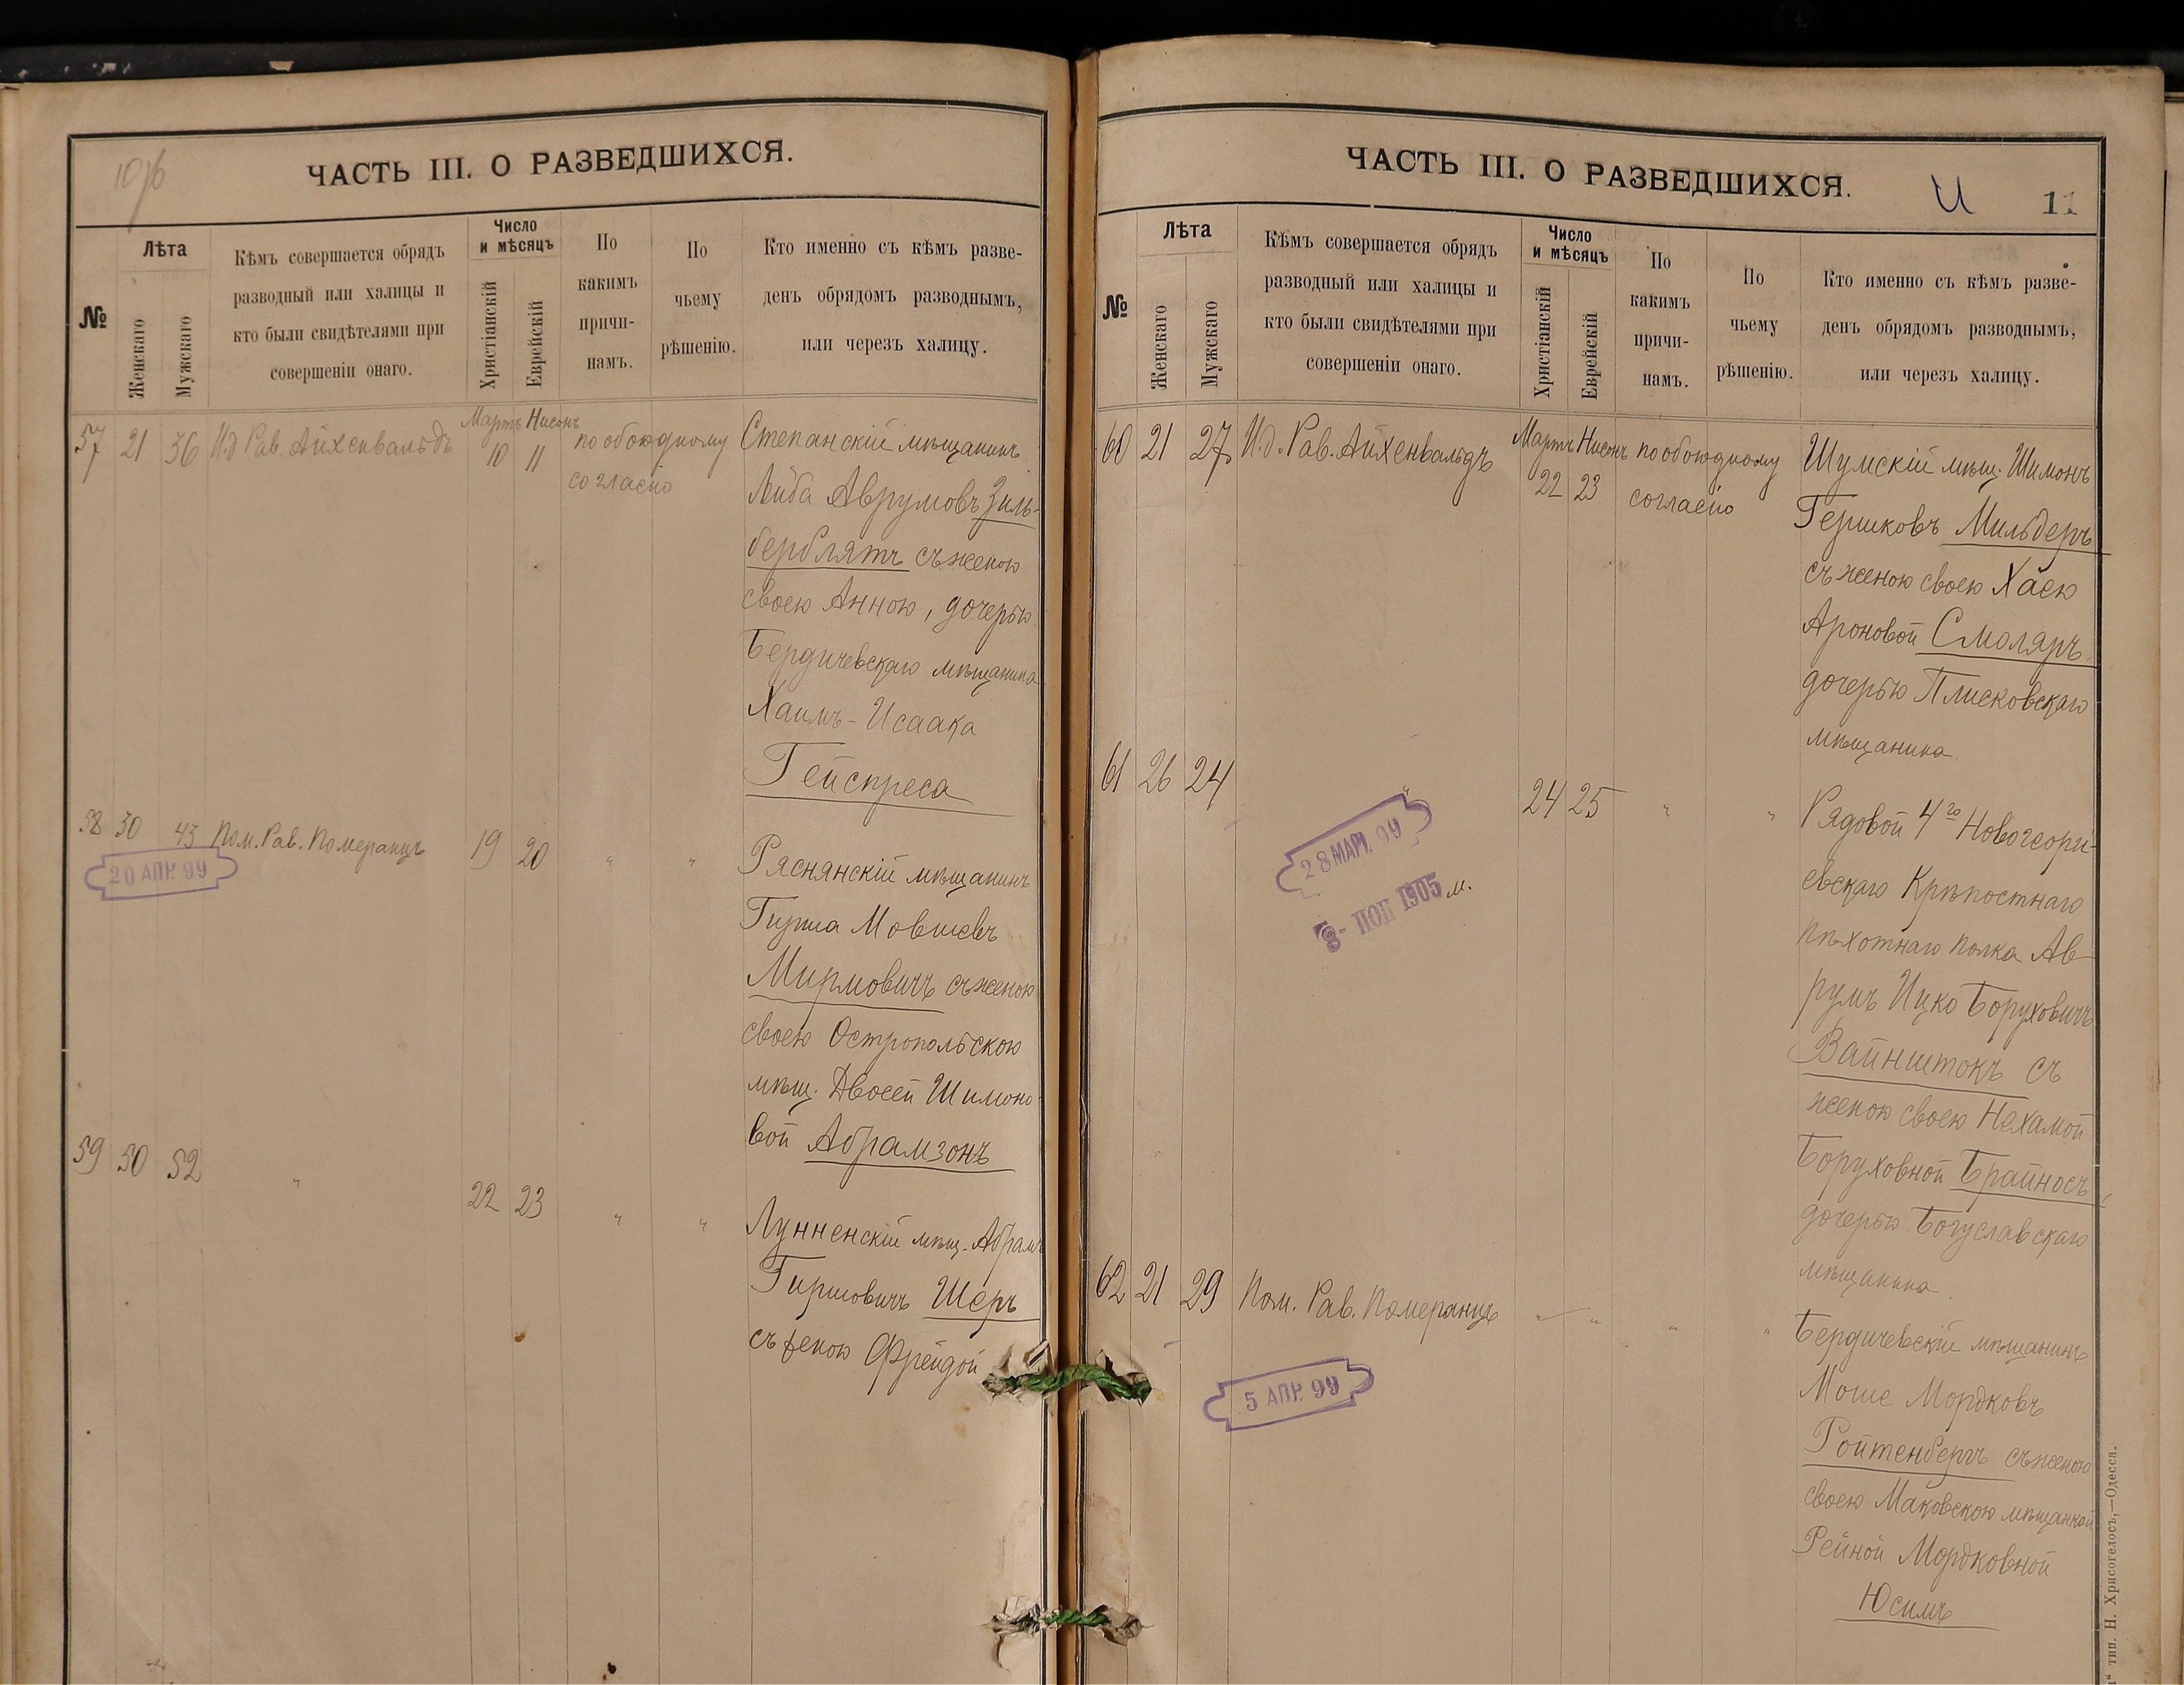 10 об
ЧАСТЬ III. О РАЗВЕДШИХСЯ.
№
Лѣта
Женскаго
Мужскаго
Кѣмъ совершается обрядъ
разводный или халицы и
кто были свидѣтелями при
совершеніи онаго.
Число
и мѣсяцъ
Христіанскій
Еврейскій
По
какимъ
причи-
намъ.
По
чьему
рѣшенію.
Кто именно съ кѣмъ разве-
денъ обрядомъ разводнымъ,
или черезъ халицу.
57 21 36 И.д Рав. Айхенвальдъ
Мартъ Нисонъ
10 11
по обоюдному
согласію
Степанскій мѣщанинъ
Лейба Аврумовъ Зиль-
берблятъ съ женою
своею Анною, дочерью
Бердичевскаго мѣщанина
Хаимъ-Исаака
Гейспреса
58 30 43 Пом. Рав. Померанцъ 19 20 " "
20 АПР. 99
Ряснянскій мѣщанинъ
Гирша Мовшевъ
Мирмовичъ съ женою
своею Остропольскою
мѣщ. Двосей Шимоно-
вой Абрамзонъ
59 50 52 " 22 23 " "
Лунненскій мѣщ. Абрамъ
Гиршовичъ Шеръ
съ женою Фрейдой
ЧАСТЬ III. О РАЗВЕДШИХСЯ.
11
№
Лѣта
Женскаго
Мужскаго
Кѣмъ совершается обрядъ
разводный или халицы и
кто были свидѣтелями при
совершеніи онаго.
Число
и мѣсяцъ
Христіанскій
Еврейскій
По
какимъ
причи-
намъ.
По
чьему
рѣшенію.
Кто именно съ кѣмъ разве-
денъ обрядомъ разводнымъ,
или черезъ халицу.
60 21 27 И.д. Рав. Айхенвальдъ
Мартъ Нисонъ
22 23
по обоюдному
согласію
Шумскій мѣщ. Шимонъ
Гершковъ Мильдеръ
съ женою своею Хаею
Ароновой Смоляръ
дочерью Плисковскаго
мѣщанина
61 26 24 " 24 25 " "
28 МАР. 99
8 - ІЮН 1905 м.
Рядовой 4го Новогеорги-
евскаго Крѣпостнаго
пѣхотнаго полка Ав-
румъ Ицко Боруховичъ
Вайнштокъ съ
женою своею Нехамой
Боруховной Брайносъ
дочерью Богуславскаго
мѣщанина
62 21 29 Пом. Рав. Померанцъ " " " "
5 АПР. 99
Бердичевскій мѣщанинъ
Моше Мордковъ
Ройтенбергъ съ женою
своею Маковскою мѣщанкой
Рейной Мордковной
Юсимъ
" тип. Н. Хрисогелосъ,—Одесса.